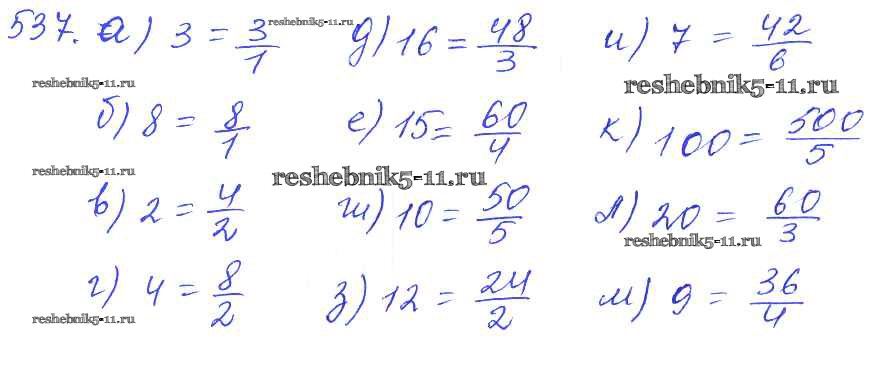 537. а) 3 = 3/1 reshebnik5-11.ru д) 16 = 48/3 и) 7 = 42/6
reshebnik5-11.ru reshebnik5-11.ru
б) 8 = 8/1 е) 15 = 60/4 к) 100 = 500/5
reshebnik5-11.ru reshebnik5-11.ru
в) 2 = 4/2 ж) 10 = 50/5 л) 20 = 60/3
reshebnik5-11.ru
г) 4 = 8/2 з) 12 = 24/2 м) 9 = 36/4
reshebnik5-11.ru